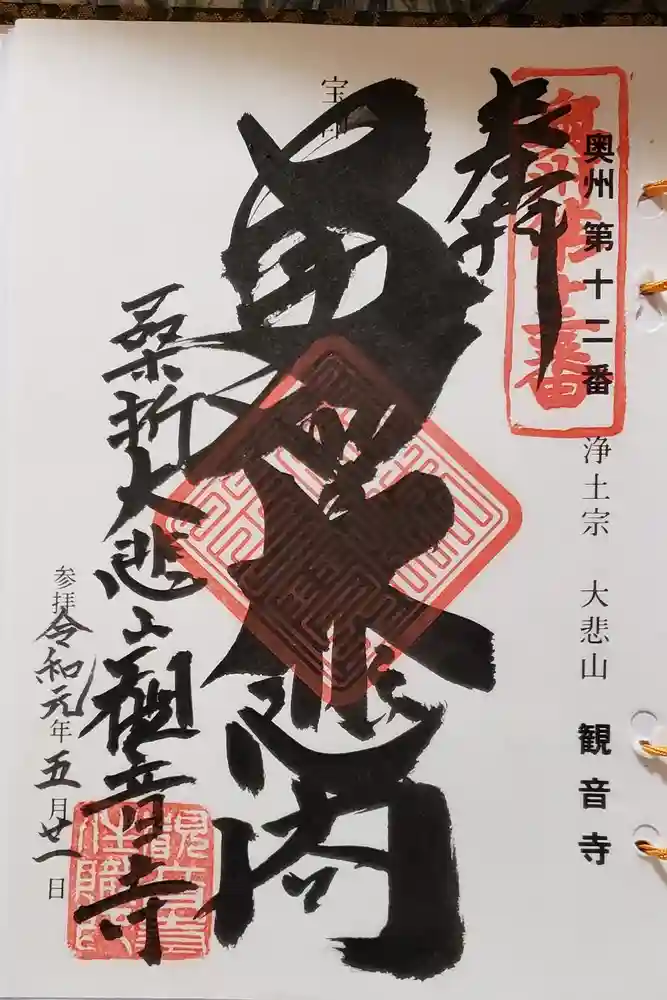 奥州 第十二番 浄土宗 大悲山 観音寺
奉拝
宝印
大悲閣
桑折大悲山観音寺
参拝 令和元年五月廿一日